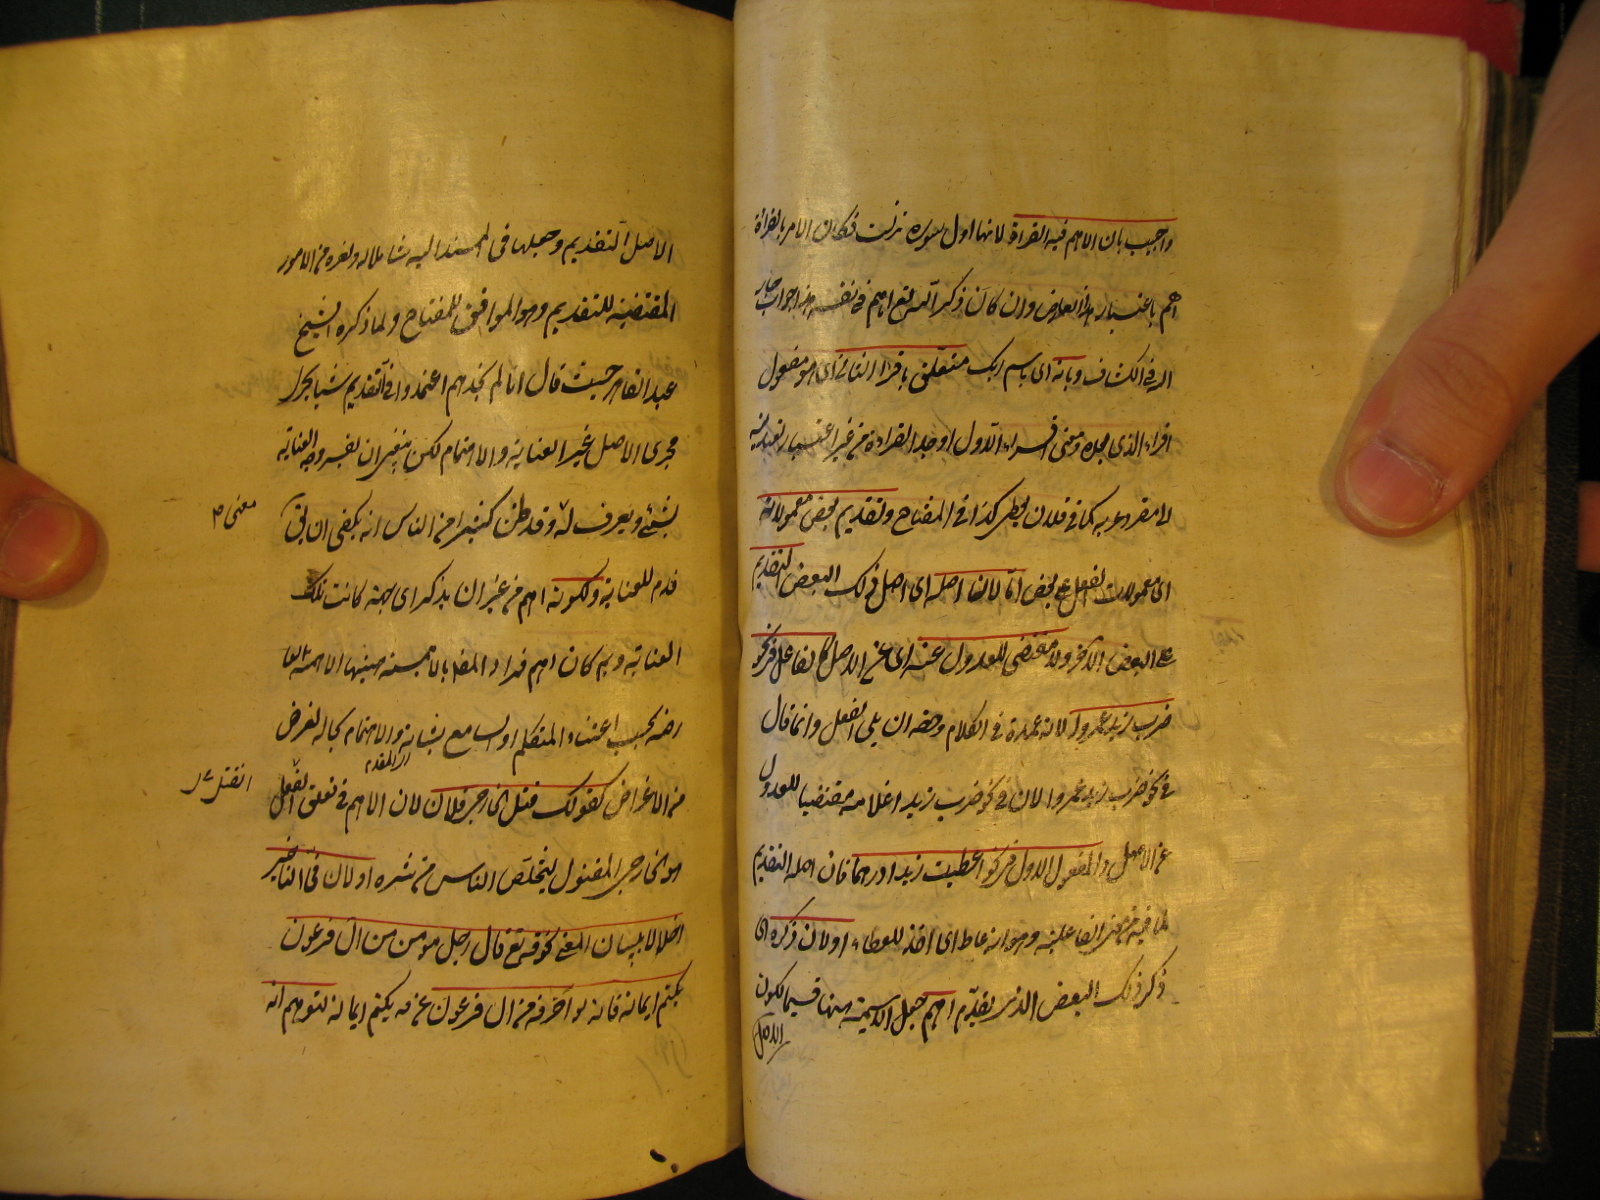 واجيب بان الاهم فيه القراة لانها اول سوره نزلت فكان الامر بالقراة
اهم باعتبار هذا العارض وان كان ذكر الله تع اهم في نفسه هذا جواب جار
الله في الكشاف وبانه اى باسم ربك متعلق باقرا الثانى اى هو مفعول
اقراء الذى بعده ومعنى اقراء الاول اوجد القراءة من غير اعتبار تعديته
الى مقروء به كما في فلان يعطى كذا في المفتاح وتقديم بعض معمولاته
اى معمولات الفعل على بعض اما لان اصله اى اصل ذلك البعض التقديم
على البعض الاخر ولا مقتضى للعدول عنه اى عن الاصل كالفاعل في نحو
ضرب زيد عمروا لانه عمدة في الكلام وحقه ان يلى الفعل وانما قال
في نحو ضرب زيد عمروا لان في نحو ضرب زيدا غلامه مقتضيا للعدول
عن الاصل والمفعول الاول في نحو اعطيت زيدا درهما فان اصله التقديم
لما فيه من معنى الفاعلية وهو انه عاط اى اخذ للعطاء او لان ذكره اى
ذكر ذلك البعض الذى يقدم اهم جعل الاهمية ههنا قسيما لكون
الاصل
الاصل التقديم وجعلها في المسند اليه شاملا له ولغيره من الامور
المقتضية للتقديم وهو الموافق للمفتاح ولما ذكره الشيخ
عبد القاهر حيث قال انا لم نجدهم اعتمدوا في التقديم شيا يجرى
مجرى الاصل غير العناية والاهتمام لكن ينبغى ان يفسر وجه العناية
بشئ ويعرف له وقد ظن كثير من الناس انه يكفى ان يق
معنى صح
قدم للعناية ولكونه اهم من غير ان يذكر اى جهة كانت تلك
العناية وبم كان اهم فمراد المصه بالاهمية ههنا الاهمية العا
رضة بحسب اعتناء المتكلم او السامع بشانه والاهتمام بحاله لغرض
من الاغراض كقولك قتل الخارجى فلان لان الاهم في تعلق الفعل
القتل
هو الخارجى المقتول ليتخلص الناس من شره او لان في التاخير
اخلالا ببيان المعنى نحو قوله تع قال رجل مومن من ال فرعون
يكتم ايمانه فانه لو اخر قوله من ال فرعون عن قوله يكتم ايمانه لتوهم انه